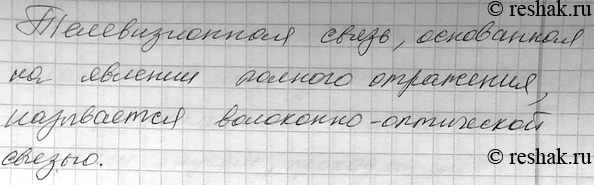 Телевизионная связь, основанная
на явлении полного отражения,
называется волоконно-оптической
связью.
© reshak.ru
© reshak.ru